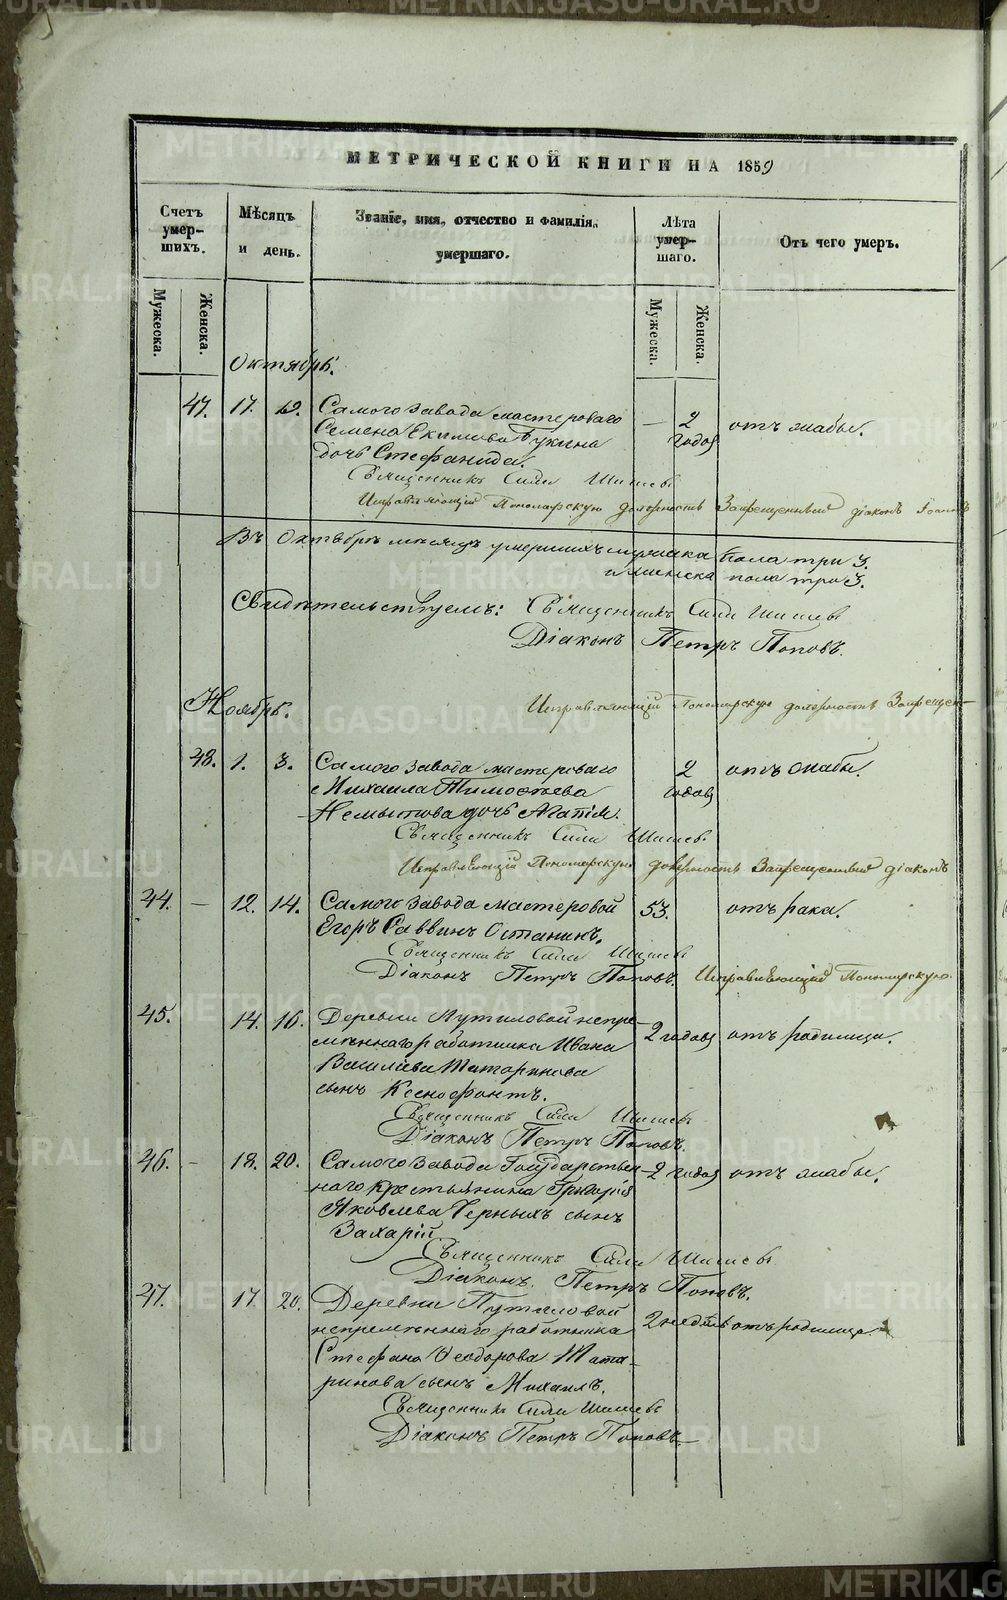 МЕТРИЧЕСКОЙ КНИГИ НА 1859
Счетъ умер-шихъ.
Мѣсяцъ и день.
Званіе, имя, отчество и фамилія умершаго.
Лѣта умер-шаго.
Отъ чего умеръ.
Мужеска. Женска.
Мужеска. Женска.
Октябрь.
47. 17. 19. Самого завода мастероваго — 2 отъ слабы.
Семена Екимова года
дочь Стефанида.
Священникъ Сила Шишевъ
Исправляющій Пономарскую должность Запрещенный діаконъ
Въ Октябрѣ мѣсяцѣ умершихъ мужеска пола три 3.
и женска пола три 3.
Свидѣтельствуемъ: Священникъ Сила Шишевъ
Діаконъ Петръ Поповъ.
Ноябрь.
Исправляющій Пономарскую должность Запрещен-
48. 1. 3. Самого завода мастероваго 2 отъ слабы.
Михаила Тимофѣева годовъ
Немытова дочь Агатія.
Священникъ Сила Шишевъ
Исправляющій Пономарскую должность Запрещенный діаконъ
44. — 12. 14. Самого завода мастеровой 53. отъ рака.
Егоръ Саввинъ Останинъ.
Священникъ Сила Шишевъ
Діаконъ Петръ Поповъ. Исправляющій Пономарскую
45. 14. 16. Деревни Путиловой непре- 2 годовъ отъ родимца.
мѣннаго работника Ивана
Васильева Татаринова
сынъ Ксенофонтъ.
Священникъ Сила Шишевъ
Діаконъ Петръ Поповъ.
46. — 18. 20. Самого завода Государствен- 2 годовъ отъ слабы.
наго крестьянина Григорія
Яковлева Черныхъ сынъ
Захарій
Священникъ Сила Шишевъ
Діаконъ Петръ Поповъ.
47. 17. 20. Деревни Путиловой
непремѣннаго работника 2 недѣль отъ родимца.
Стефана Ѳеодорова Тата-
ринова сынъ Михаилъ.
Священникъ Сила Шишевъ
Діаконъ Петръ Поповъ.
METRIKI.GASO-URAL.RU